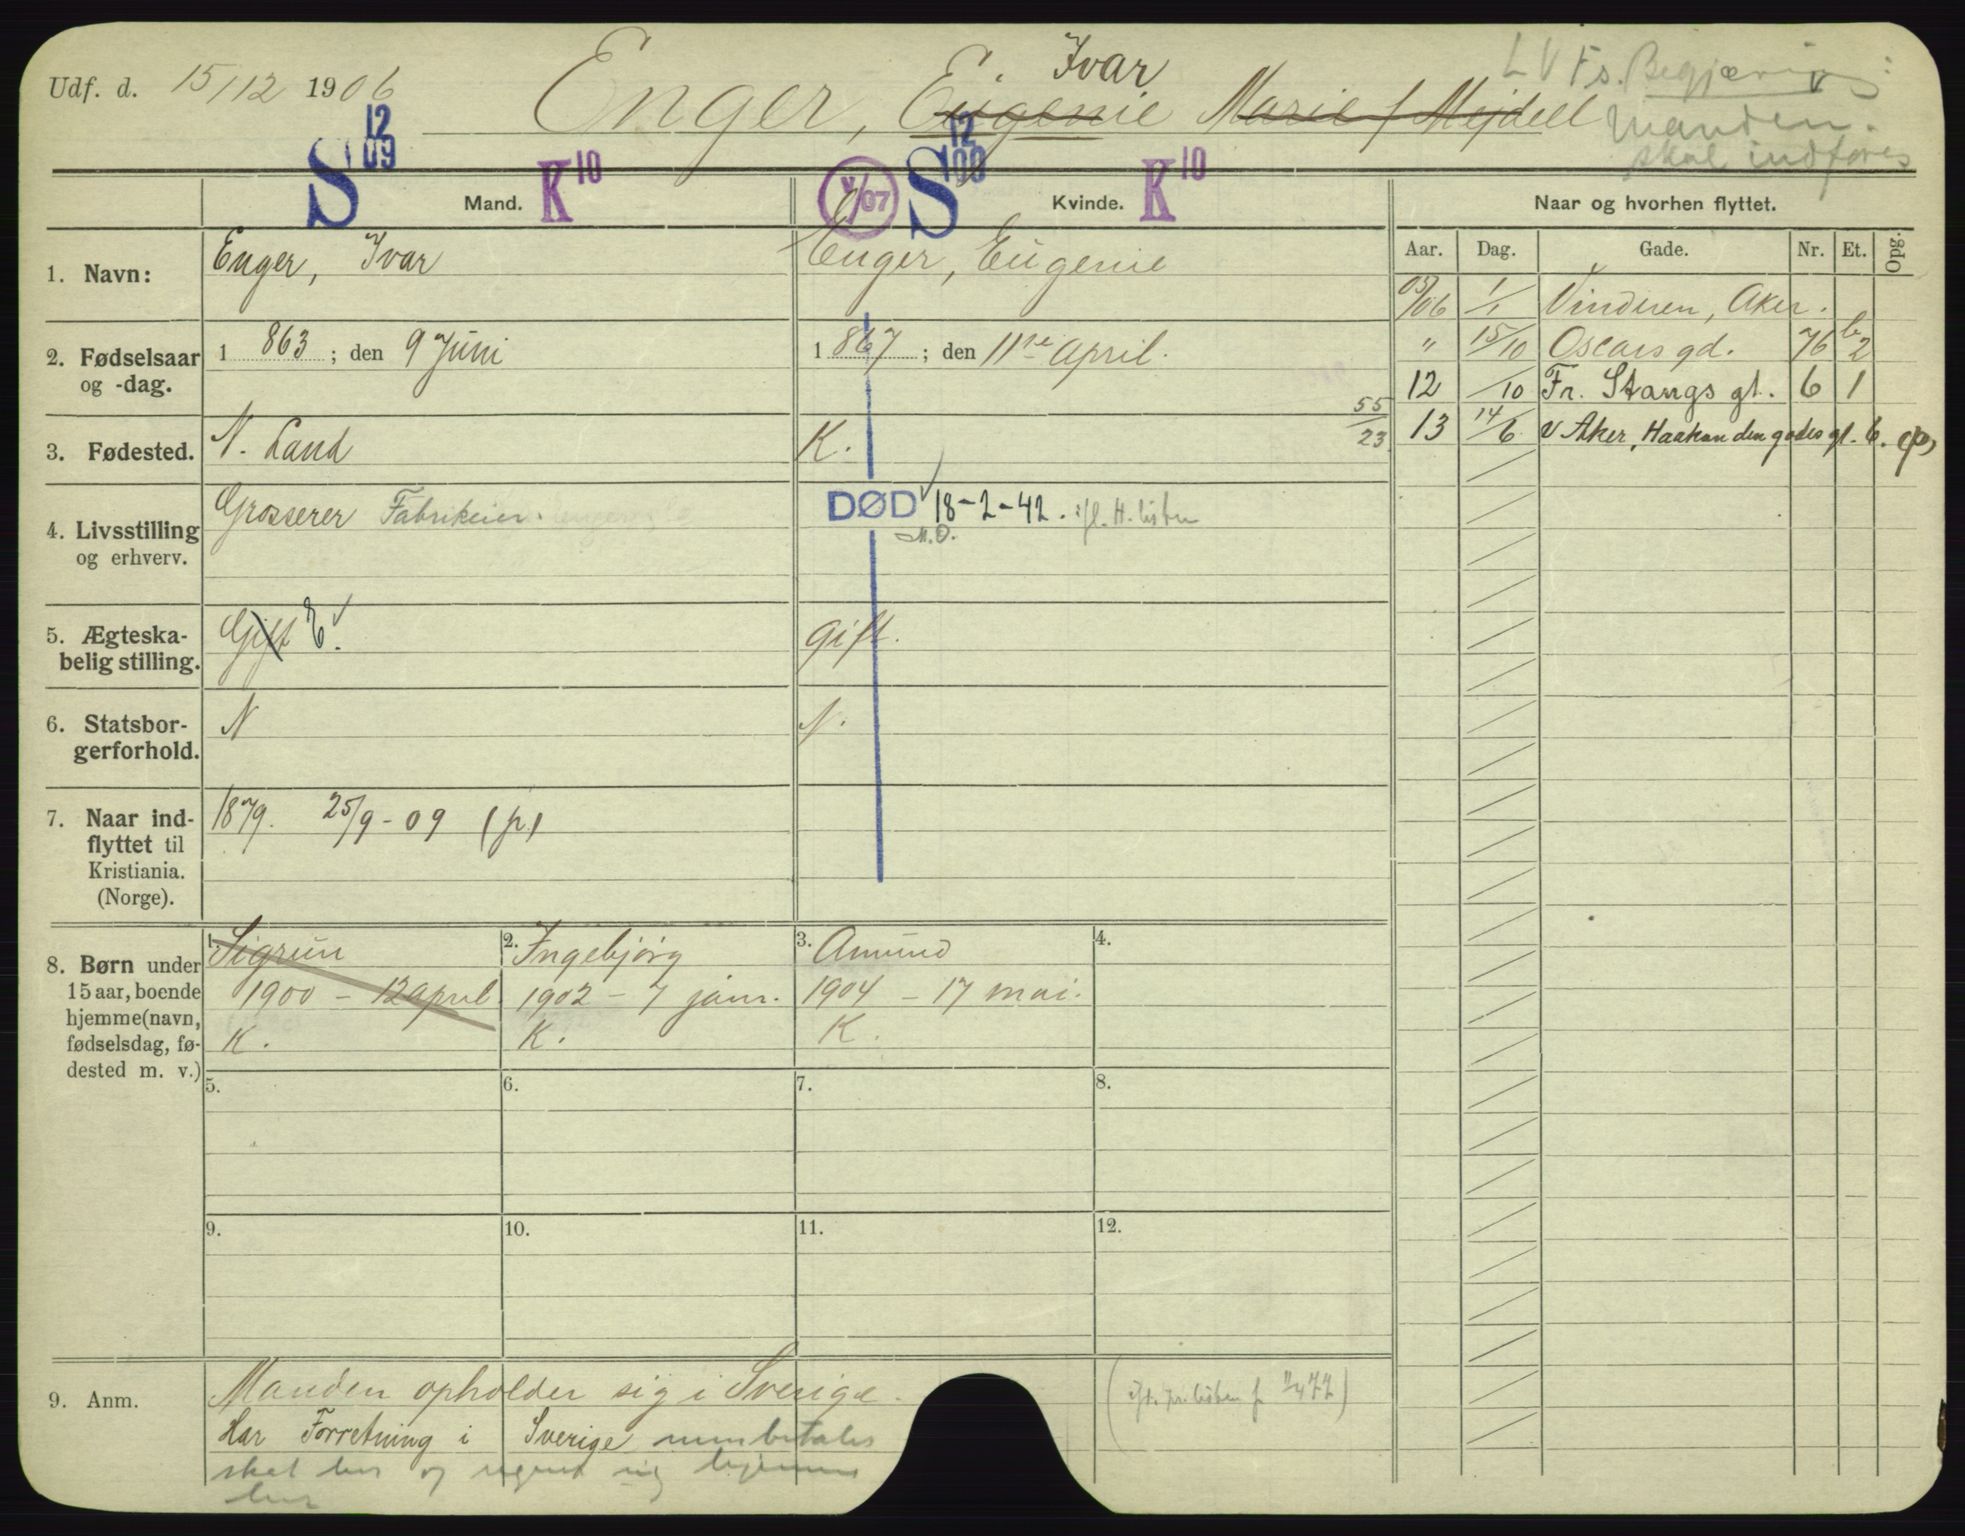 Udf. d. 15/12 1906
Enger, Eugenie Marie f Mejdell
Ivar
L V Fs. Begjæring:
Manden
skal indføres
S 12 09 Mand. K 10
V/07 S 12 00 Kvinde. K 10
Naar og hvorhen flyttet.
Aar. Dag. Gade. Nr. Et. Opg.
1. Navn: Enger, Ivar
Enger, Eugenie
2. Fødselsaar og -dag. 1 863 ; den 9 Juni
1 867 ; den 11te April.
3. Fødested. N. Land
K.
55/23
4. Livsstilling og erhverv. Grosserer Fabrikeier.
DØD 18-2-42. ifl. H. listen
M.O.
5. Ægteska-
belig stilling. Gift E.
gift.
6. Statsbor-
gerforhold. N
N.
7. Naar ind-
flyttet til
Kristiania.
(Norge). 1879. 25/9-09 (p)
05/06 1/1 Vinderen, Aker.
" 15/10 Oscars gd. 76 b 2
12 /10 Fr. Stangs gt. 6 1
13 14/6 V Aker, Haakon den godes gt. 6. (p)
8. Børn under
15 aar, boende
hjemme (navn,
fødselsdag, fø-
dested m. v.)
1. Sigrun
1900 - 12 april
K.
2. Ingebjørg
1902 - 7 jan.
K.
3. Amund
1904 - 17 mai.
K.
4.
5. 6. 7. 8.
9. 10. 11. 12.
9. Anm. Manden opholder sig i Sverige.
Har Forretning i Sverige men betaler
skat her og regner sig hjemme
her